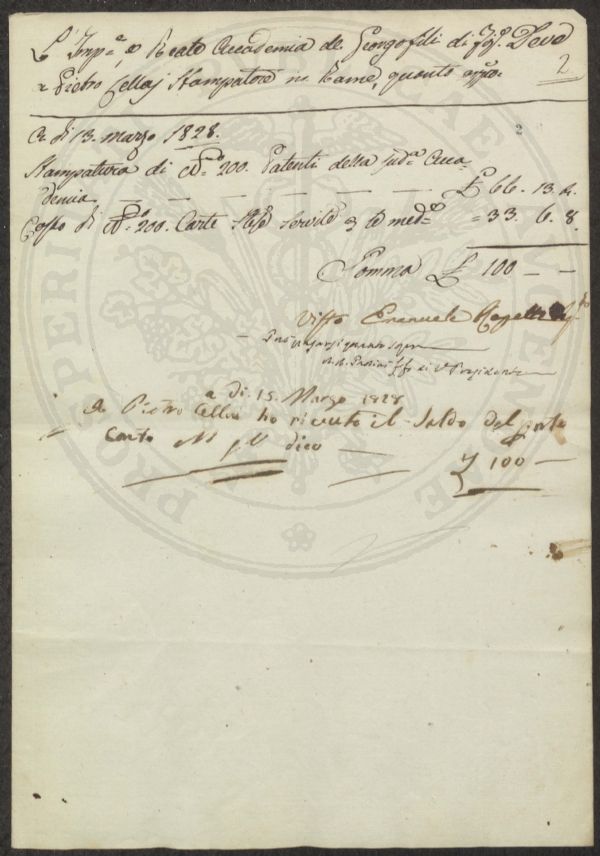 L'Imp.ª e Reale Accademia de Georgofili di Deve
a Pietro Cellaj Stampatore in Rame, quanto app.º
2
2
A dì 13. marzo 1828.
Stampatura di N.º 200. Patenti della sud.ª Acca-
demia — — — — — — — £ 66. 13. 4.
Costo di N.º 200. Carte servite le med.e = 33. 6. 8.
Somma £ 100 — —
Visto Emanuele Repetti
di V. Presidente
a di. 15. Marzo 1828
Io Pietro Cellai ho ricevuto il Saldo del
Conto dico — £ 100 —
PROSPERITATI PUBLICAE AUGENDAE